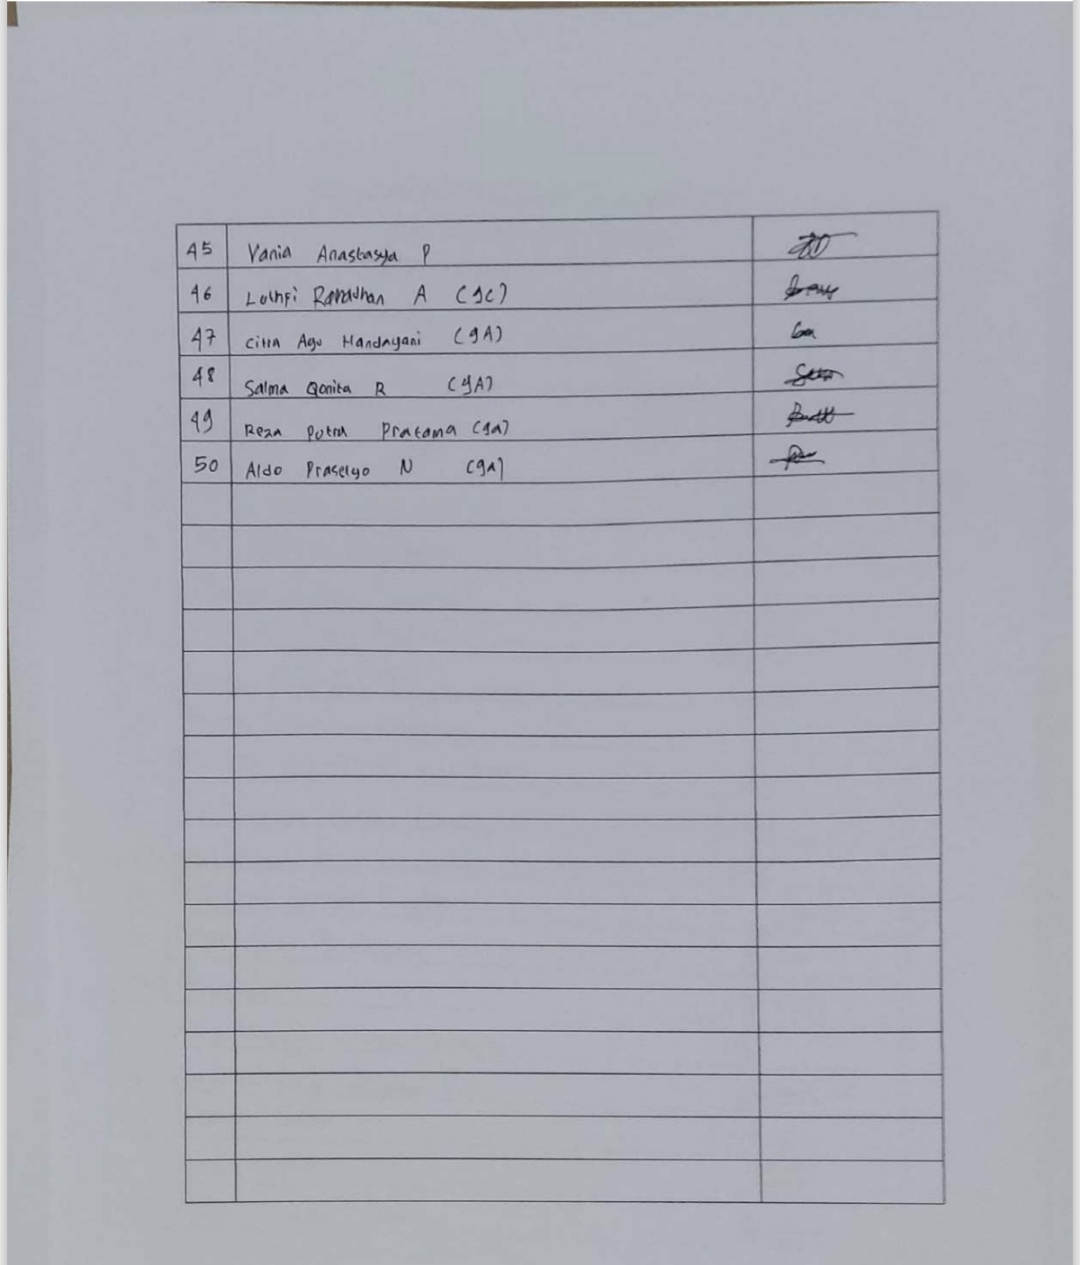 45 Vania Anastasya P
46 Luthfi Ramadhan A (9C)
47 Citra Ayu Handayani (9A)
48 Salma Qonita R (9A)
49 Reza Putra Pratama (9a)
50 Aldo Prasetyo N (9A)